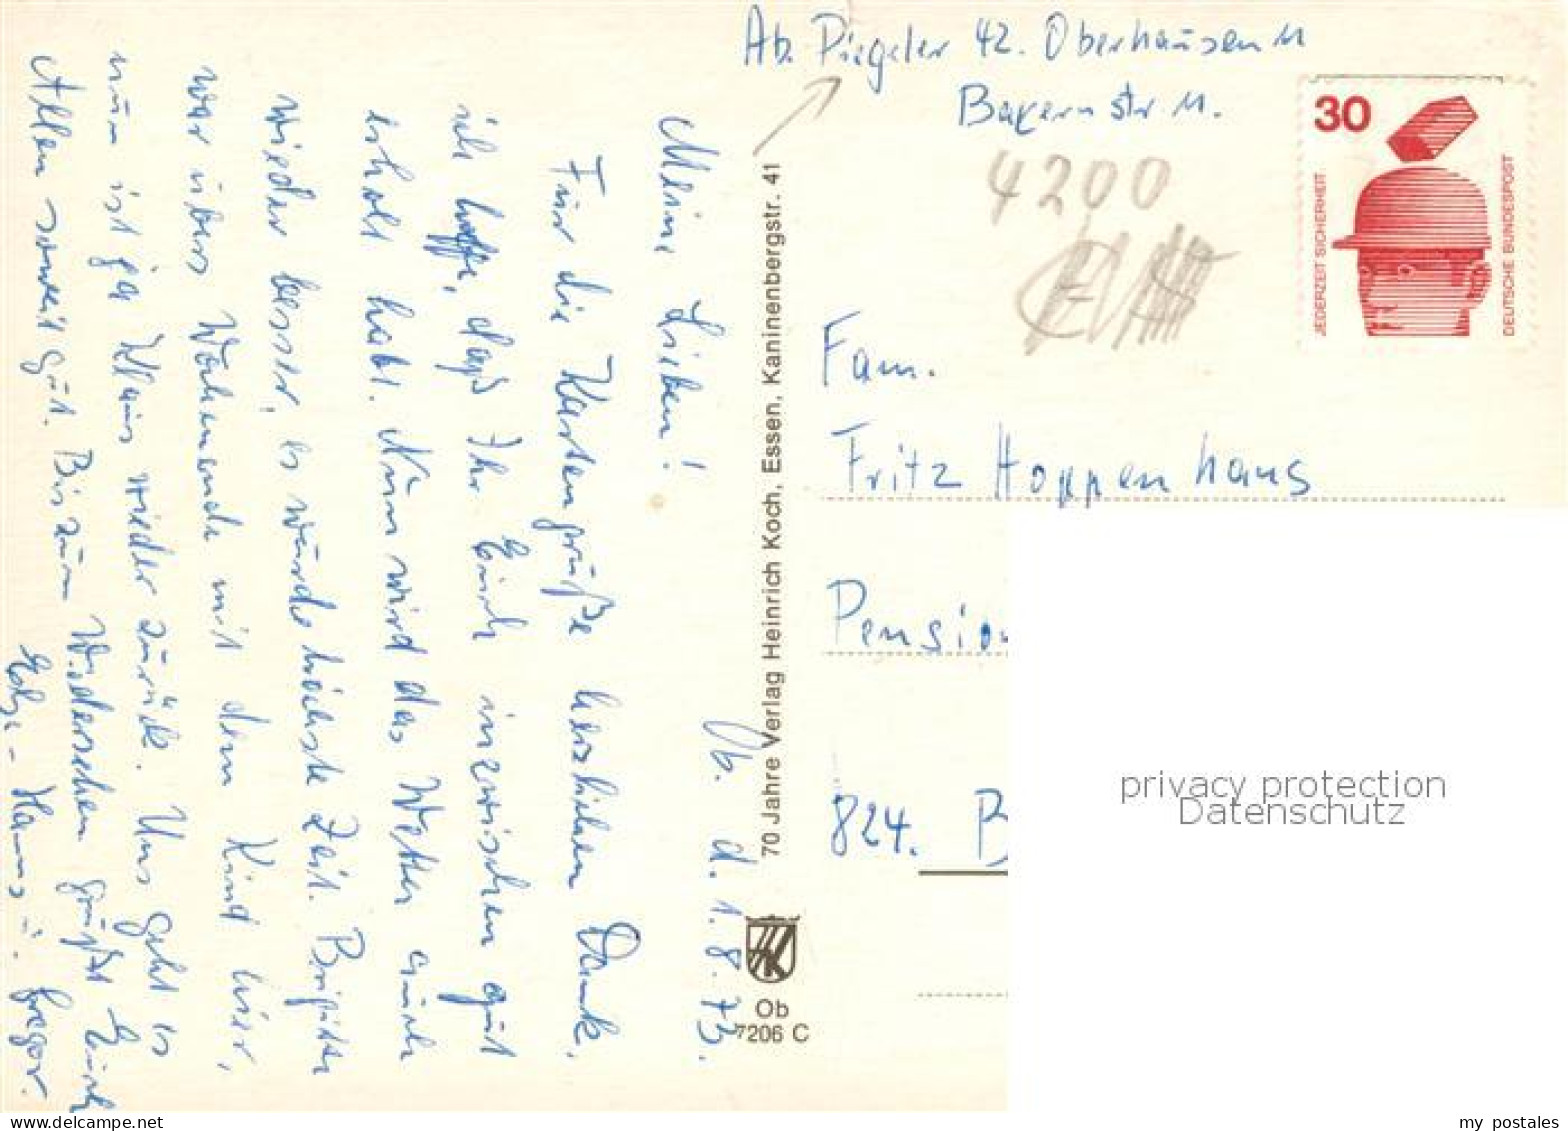 Ab. Piegeler 42. Oberhausen 11
Bayernstr 11.
4200
30
JEDERZEIT SICHERHEIT
DEUTSCHE BUNDESPOST
Fam.
Fritz Hoppenhaus
Pension
824. B
Ob. d. 1.8.73.
Meine Lieben!
Für die Kartengrüße herzlichen Dank.
ich hoffe, daß Ihr Euch inzwischen gut
erholt habt. Nun wird das Wetter auch
wieder besser, es wurde höchste Zeit. Brigitte
war übers Wochenende mit dem Kind hier,
nun ist ja Klaus wieder zurück. Uns geht es
Allen soweit gut. Bis zum Wiedersehen grüßt Euch
Hanns u. Gregor.
70 Jahre Verlag Heinrich Koch, Essen, Kaninenbergstr. 41
Ob
7206 C
privacy protection
Datenschutz
my postales